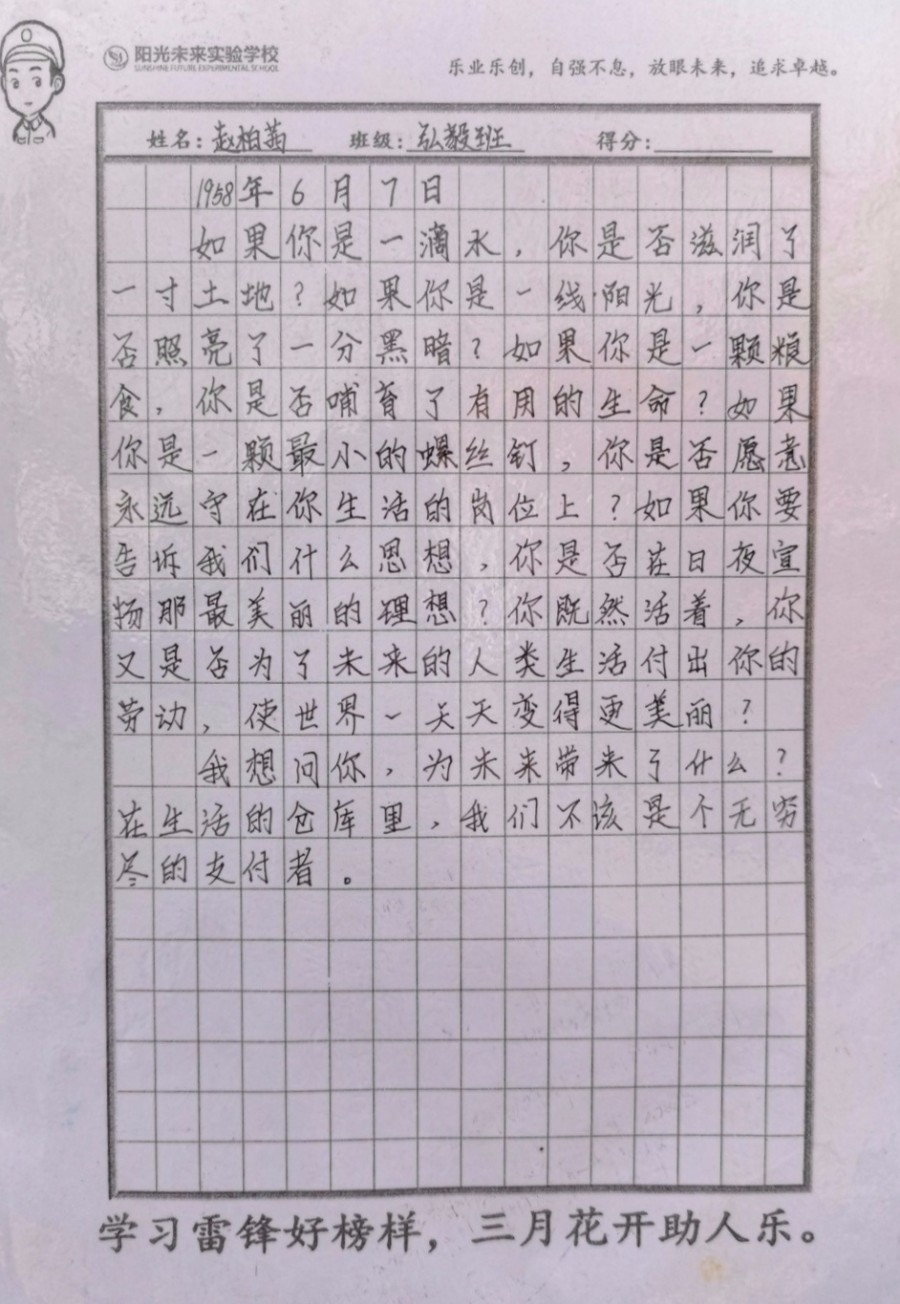 阳光未来实验学校
SUNSHINE FUTURE EXPERIMENTAL SCHOOL
乐业乐创，自强不息，放眼未来，追求卓越。
姓名：赵柏茜 班级：弘毅班 得分：
1958年6月7日
如果你是一滴水，你是否滋润了
一寸土地？如果你是一线阳光，你是
否照亮了一分黑暗？如果你是一颗粮
食，你是否哺育了有用的生命？如果
你是一颗最小的螺丝钉，你是否愿意
永远守在你生活的岗位上？如果你要
告诉我们什么思想，你是否在日夜宣
扬那最美丽的理想？你既然活着，你
又是否为了未来的人类生活付出你的
劳动，使世界一天天变得更美丽？
我想问你，为未来带来了什么？
在生活的仓库里，我们不该是个无穷
尽的支付者。
学习雷锋好榜样，三月花开助人乐。